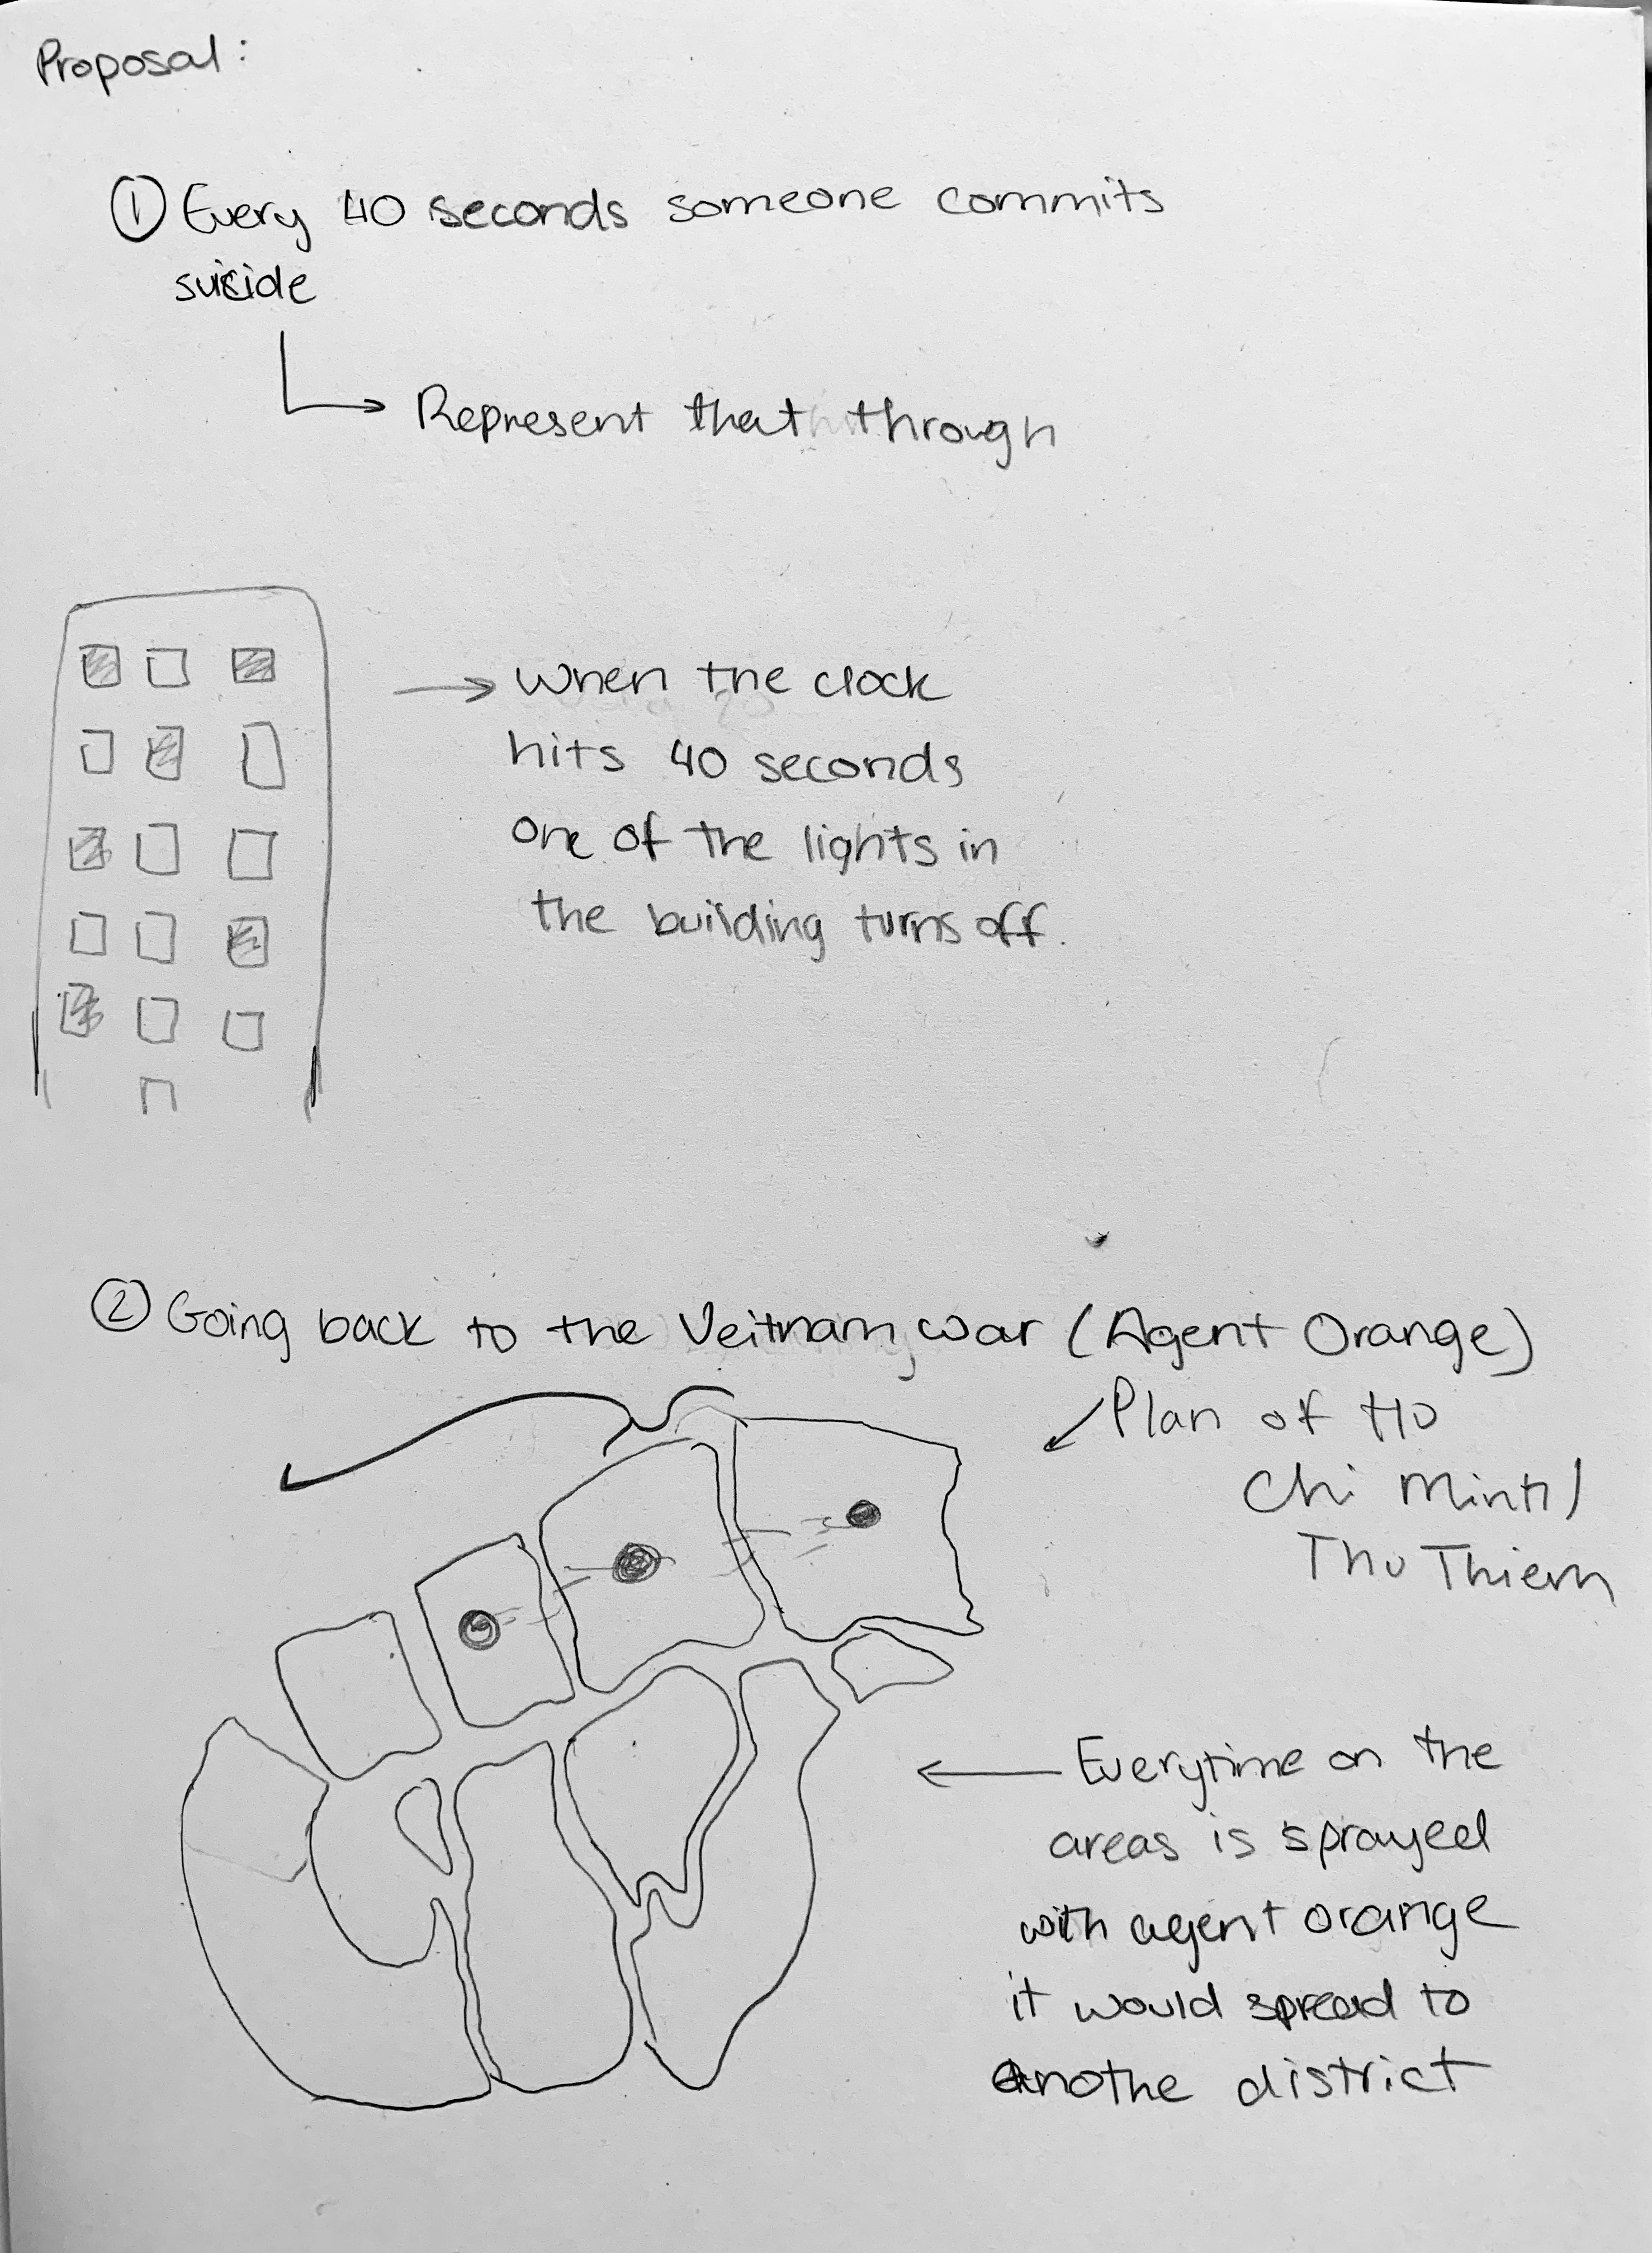 Proposal:
① Every 40 seconds someone commits
suicide
Represent that through
When the clock
hits 40 seconds
one of the lights in
the building turns off.
② Going back to the Veitnam war (Agent Orange)
Plan of Ho
Chi Minh/
Thu Thiem
Everytime on the
areas is sprayed
with agent orange
it would spread to
Anothe district